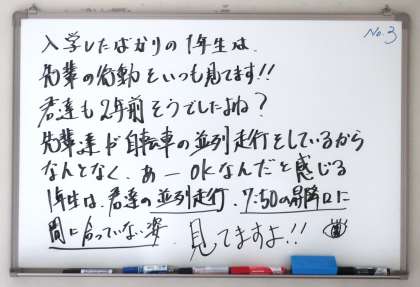 No.3
入学したばかりの1年生は、
先輩の行動をいつも見てます!!
君達も2年前そうでしたよね?
先輩達が自転車の並列走行をしているから
なんとなく、あーOKなんだと感じる
1年生は、君達の並列走行、7:50の昇降口に
間に合っていない姿、見てますよ!!